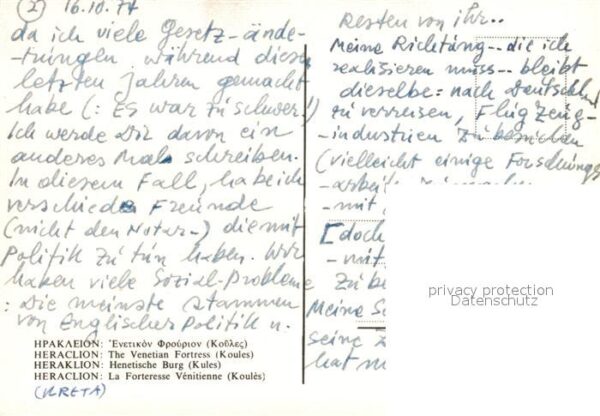 ② 16.10.77
da ich viele Gesetz-ände-
-rungen während diesen
letzten Jahren gemacht
habe (: Es war zu schwer!)
Ich werde Dir davon ein
anderes Mal schreiben.
In diesem Fall, habe ich
verschiede Freunde
(nicht den Notar-) die mit
Politik zu tun haben. Wir
haben viele Sozial-Probleme
: Die meinste stammen
von Englischer Politik u.
ΗΡΑΚΛΕΙΟΝ: Ἐνετικὸν Φρούριον (Κοῦλες)
HERACLION: The Venetian Fortress (Koules)
HERAKLION: Henetische Burg (Kules)
HERACLION: La Forteresse Vénitienne (Koulès)
(KRETA)
Resten von ihr..
Meine Richtung -- die ich
realisieren muss -- bleibt
dieselbe: nach Deutschl
zu verreisen, Flugzeug-
-industrien zu besuchen
(vielleicht einige Forschungs
-arbei
-mit
[doch
-mit
zu be
Meine S
seine
hat m
privacy protection
Datenschutz